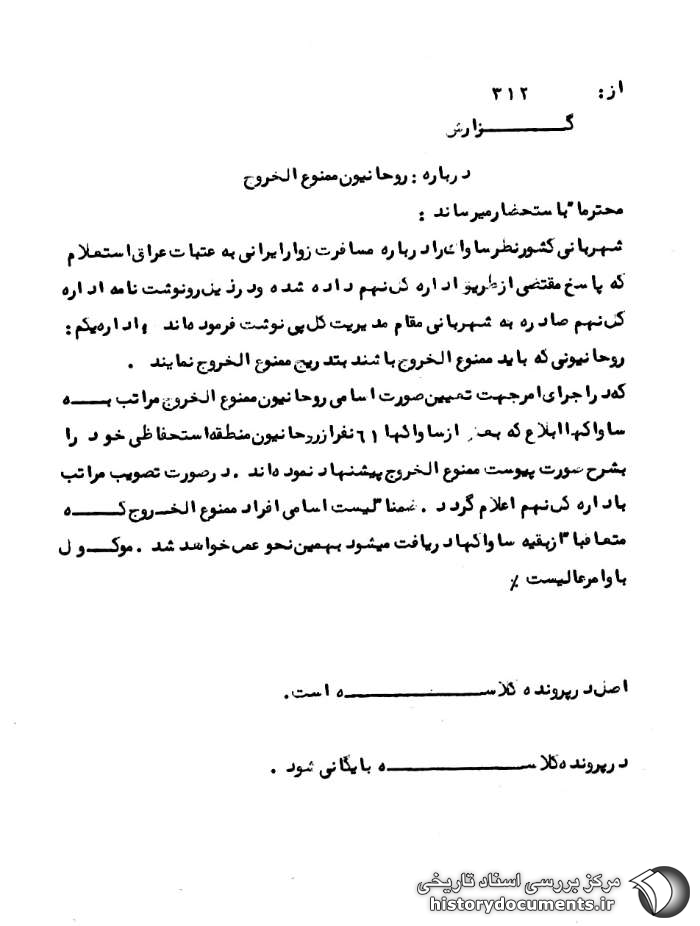 از: ۳۱۲
گـــــــزارش
درباره : روحانیون ممنوع الخروج
محترما" باستحضار میرساند :
شهربانی کشور نظر ساواک را درباره مسافرت زوار ایرانی به عتبات عراق استعلام
که پاسخ مقتضی از طریق اداره کل نهم داده شده و در ذیل رونوشت نامه اداره
کل نهم صادره به شهربانی مقام مدیریت کل پی نوشت فرموده اند اداره یکم :
روحانیونی که باید ممنوع الخروج باشند بتدریج ممنوع الخروج نمایند .
که در اجرای امر جهت تعیین صورت اسامی روحانیون ممنوع الخروج مراتب بــــه
ساواکها ابلاغ که بعضی از ساواکها ۶۱ نفر از روحانیون منطقه استحفاظی خود را
بشرح صورت پیوست ممنوع الخروج پیشنهاد نموده اند . در صورت تصویب مراتب
باداره کل نهم اعلام گردد . ضمنا" لیست اسامی افراد ممنوع الخـروج کـــــه
متعاقبا" از بقیه ساواکها دریافت میشود بهمین نحو عمل خواهد شد . موکـــول
باوامر عالیست ٪
اصل در پرونده کلاســـــــــــــه است .
در پرونده کلاســـــــــــــه بایگانی شود .
مرکز بررسی اسناد تاریخی
historydocuments.ir